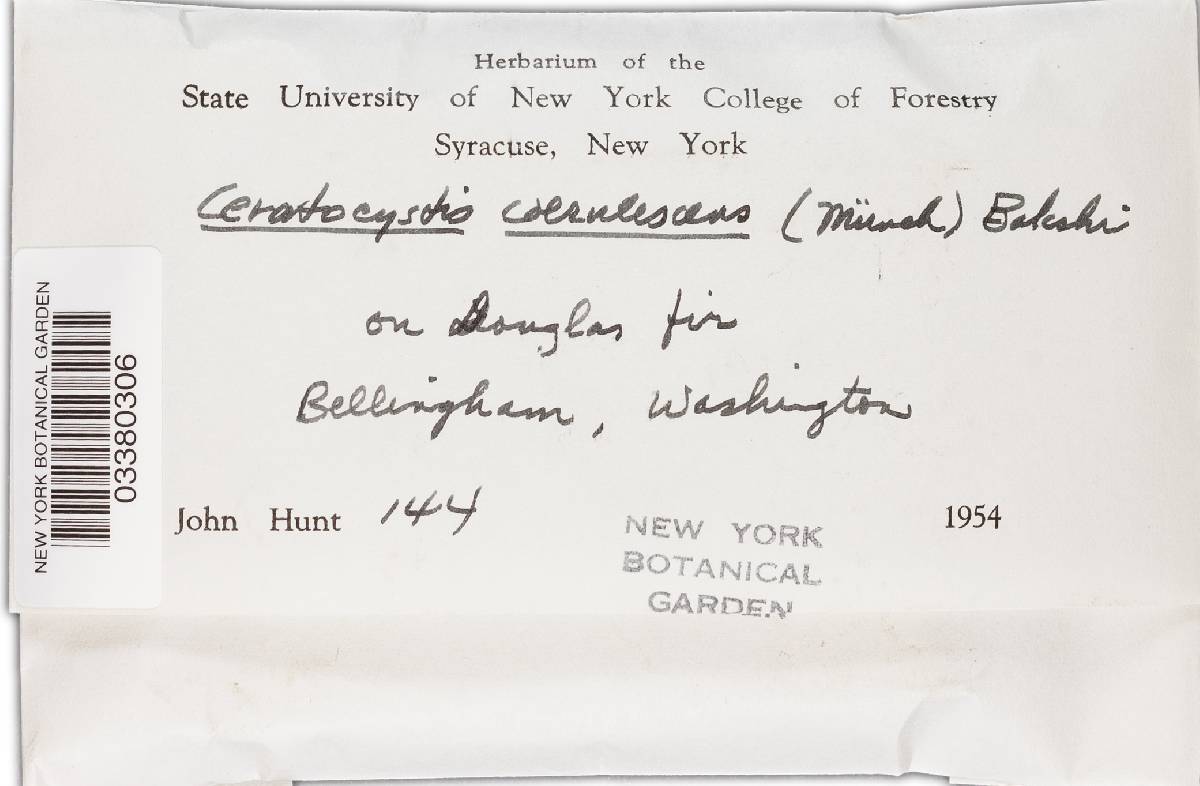 Herbarium of the
State University of New York College of Forestry
Syracuse, New York
Ceratocystis coerulescens (Münch) Bakshi
on Douglas fir
Bellingham, Washington
John Hunt 144
1954
NEW YORK
BOTANICAL
GARDEN
NEW YORK BOTANICAL GARDEN
03380306